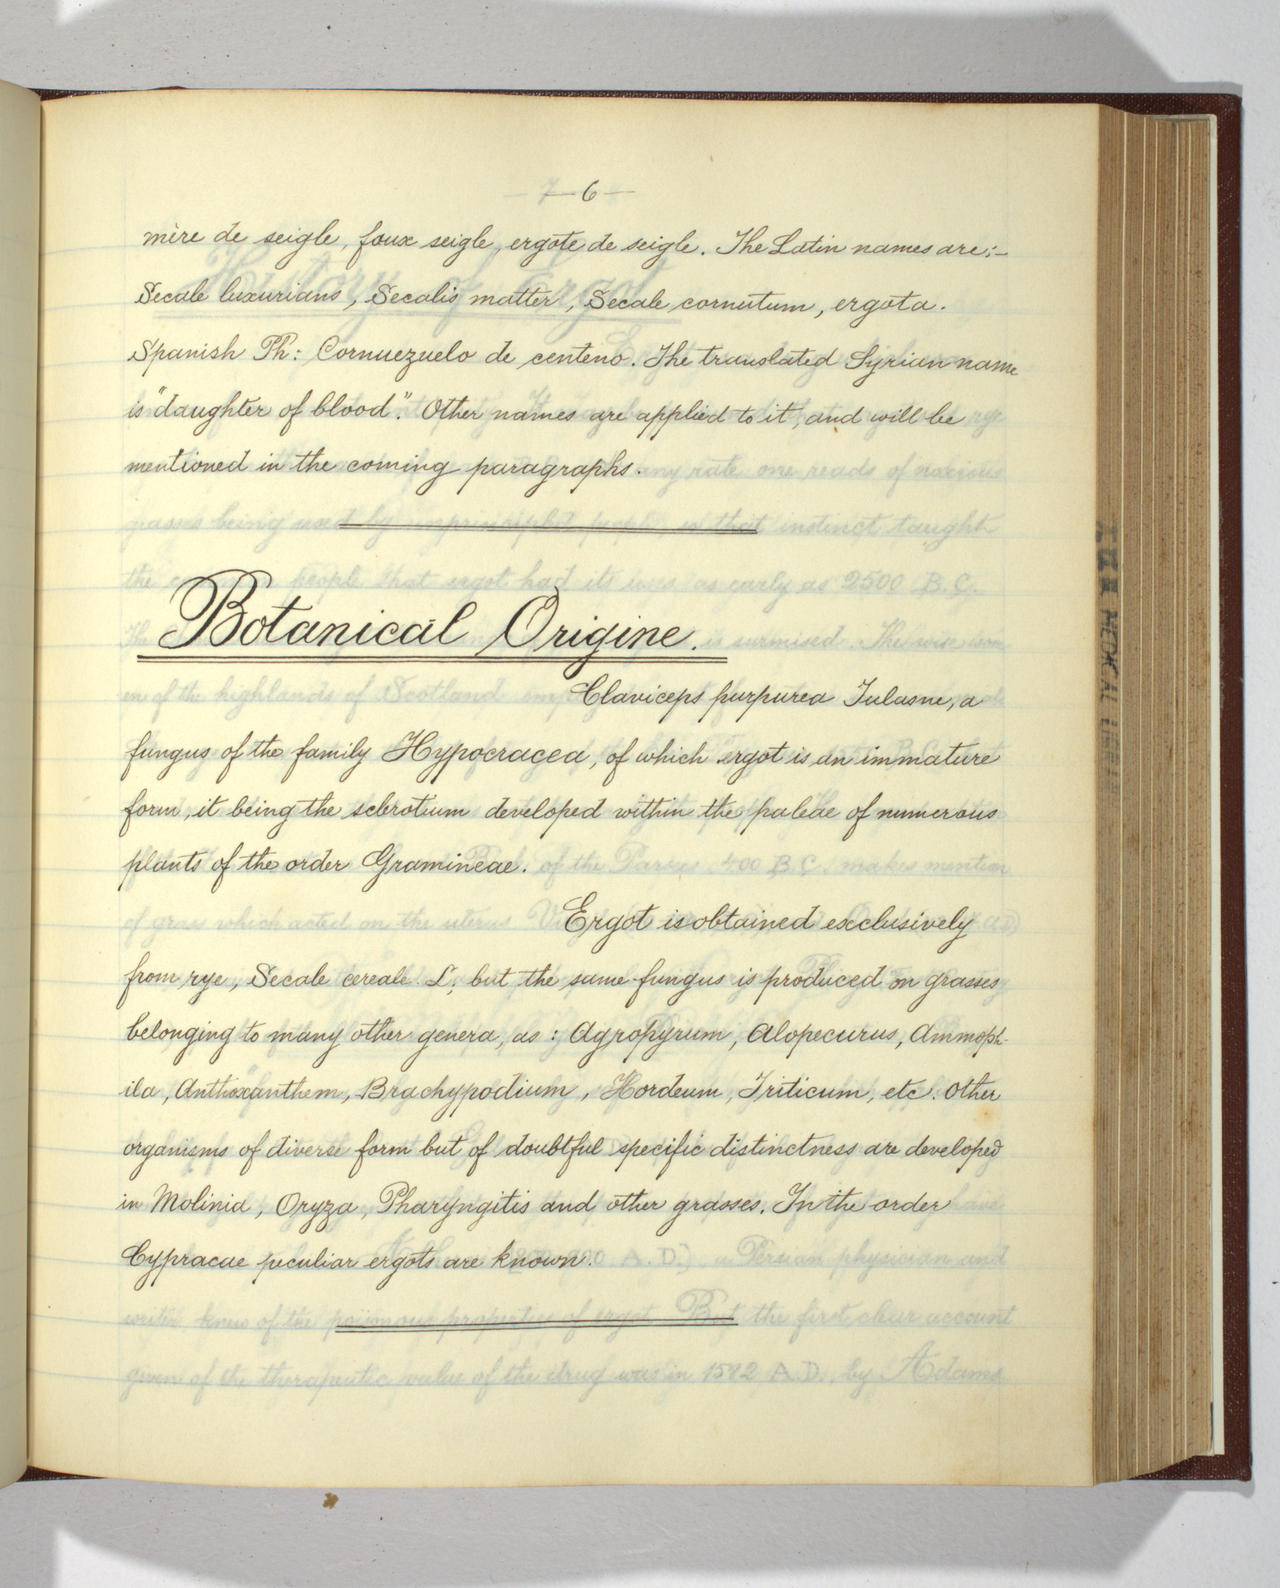 — 6 —
mère de seigle, faux seigle, ergote de seigle. The Latin names are:-
Secale luxurians, Secalis matter, Secale cornutum, ergota.
Spanish Ph: Cornuezuelo de centeno. The translated Syrian name
is "daughter of blood". Other names are applied to it, and will be
mentioned in the coming paragraphs.
Botanical Origine.
Claviceps purpurea Tulasne, a
fungus of the family Hypocracea, of which ergot is an immature
form, it being the sclrotium developed within the paleae of numerous
plants of the order Gramineae.
Ergot is obtained exclusively
from rye, Secale cereale L; but the same fungus is produced on grasses
belonging to many other genera, as: Agropyrum, Alopecurus, Ammoph-
ila, Anthoxanthem, Brachypodium, Hordeum, Triticum, etc. Other
organisms of diverse form but of doubtful specific distinctness are developed
in Molinia, Oryza, Pharyngitis and other grasses. In the order
Cypracae peculiar ergots are known.
MEDICAL